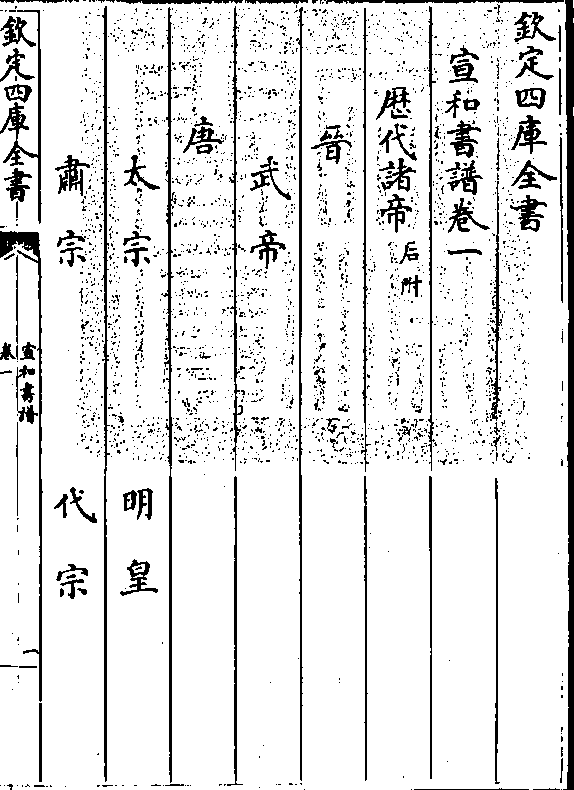 欽定四庫全書
宣和書譜卷一
歴代諸帝后附
晉
武帝
唐
太宗 明皇
肅宗 代宗
欽定四庫全書
宣和書譜
卷一
一